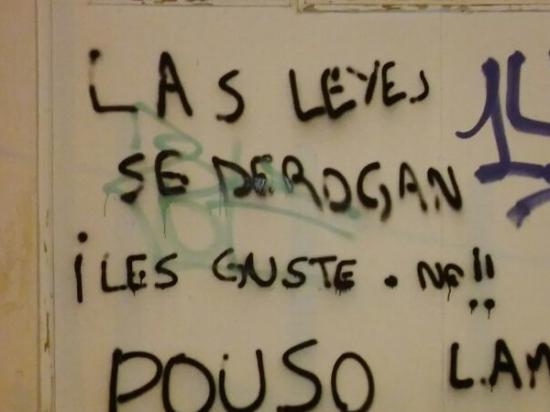 LAS LEYES
SE DEROGAN
¡LES GUSTE . NO!!
POUSO L.AM